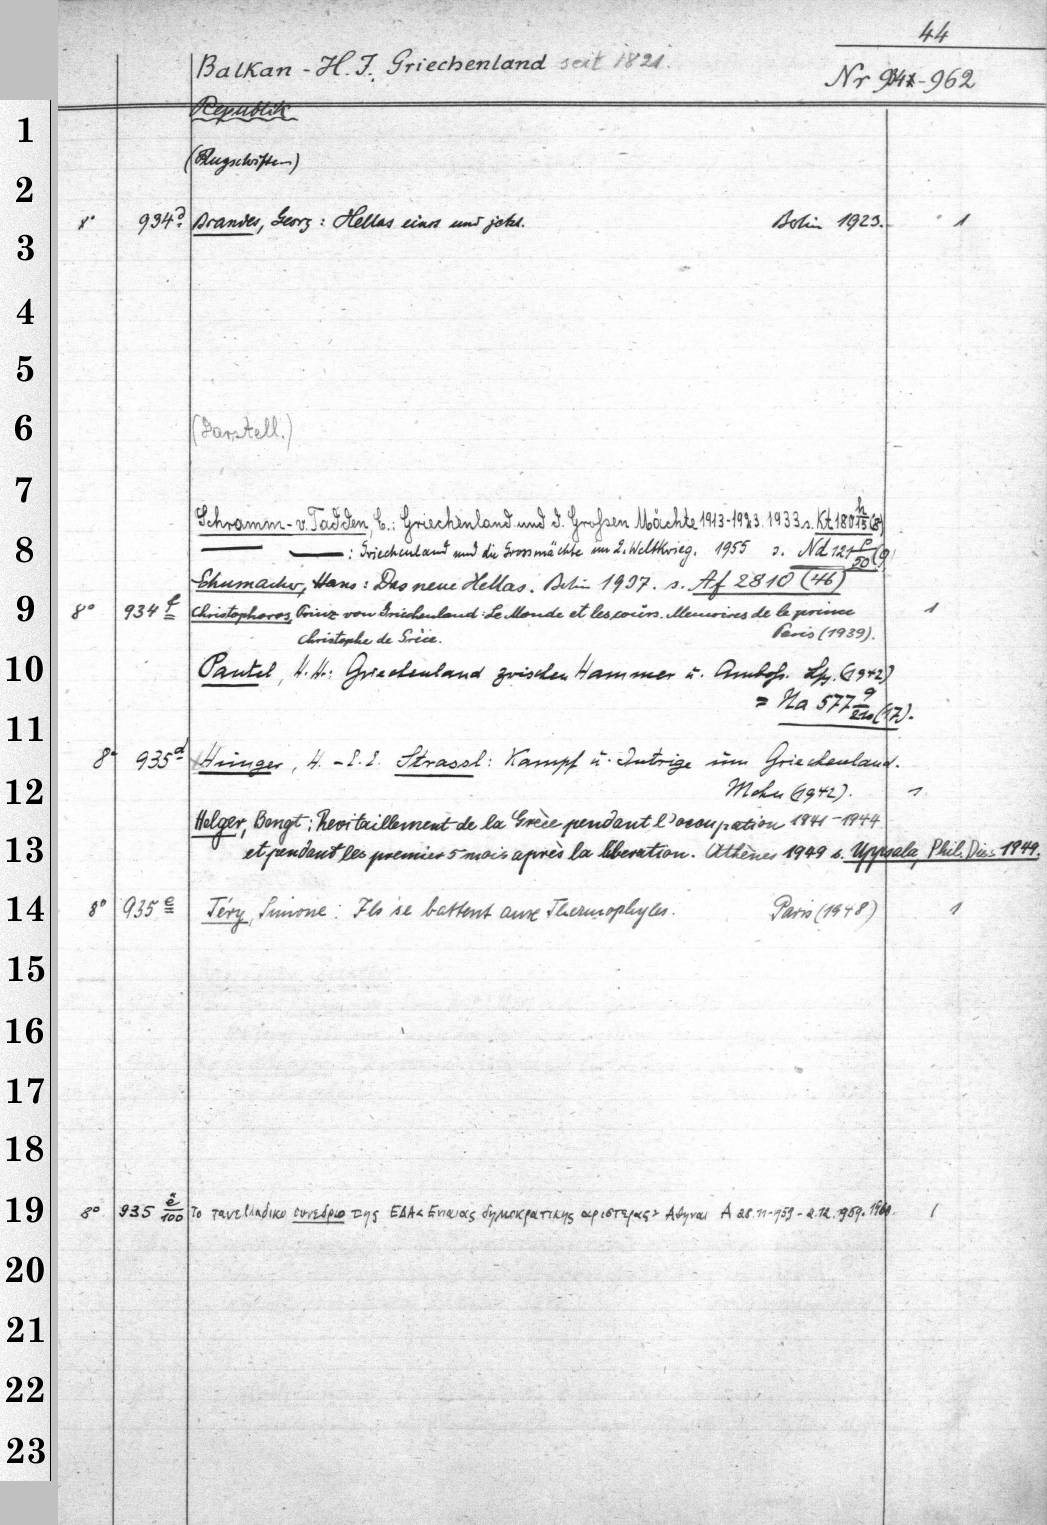 44
Balkan - H. J., Griechenland seit 1821.
Nr 941-962
Republik
1
(Flugschriften)
2
8° 934 Brandes, Georg: Hellas einst und jetzt. Berlin 1923. 1
3
4
5
6 (Darstell.)
7
Schramm-v. Tadden, E.: Griechenland und d. Großen Mächte 1913-1923. 1933 s. Kt 180 h/15 (8)
8 : Griechenland und die Grossmächte im 2. Weltkrieg. 1955 s. Nd 121 f/50 (9)
Schumacher, Hans: Das neue Hellas. Berlin 1937. s. Af 2810 (46)
9 8° 934 f Christophoros, Prinz von Griechenland: Le Monde et les cours. Memoires de le prince 1
Christophe de Grèce. Paris (1939).
10 Pantel, H. H.: Griechenland zwischen Hammer u. Amboß. Lpz. (1942)
= Na 577 g/210 (17).
11
8° 935 d Hunger, H. - E. E. Strassl: Kampf u. Intrige um Griechenland.
12 Mchn (1942). 1
Helger, Bengt: Revitaillement de la Grèce pendant l'occupation 1941-1944
13 et pendant les premier 5 mois après la liberation. Athènes 1949 s. Uppsala, Phil. Diss 1949.
14 8° 935 e Téry, Simone: Ils se battent aux Thermophyles. Paris (1948) 1
15
16
17
18
19 8° 935 ê/100 Το πανελλαδικο συνεδριο της ΕΔΑ < Ενιαιας δημοκρατικης αριστερας > Αθηναι Α 28.11-959 - 2.12.1959. 1960. 1
20
21
22
23